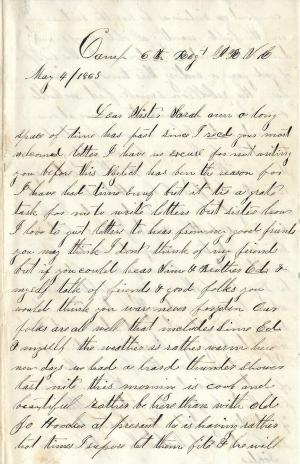 Camp 6th Regt N H V
May 4/1863
Dear Sister Sarah ann a long
space of time has past since I recd your most
welcomed letter I have no excuse for not writing
you before this Neglect has ben the reason for
I have had time enuf but it is a grate
task for me to write letters but sister how
I love to get letters to hear from my good friends
you may think I dont think of my friend
but if you could hear Simo & Brother Ed &
myself talk of friends & good folks you
would think you ware never forgoten Our
folks are all well that includes Simo Ed
& myself the weather is rather warm here
now days we had a hard thunder shower
last nite this morning is cool and
beautifull rather be here than with old
Jo Hooker at present he is having rather
hot times I supose let them file I he will